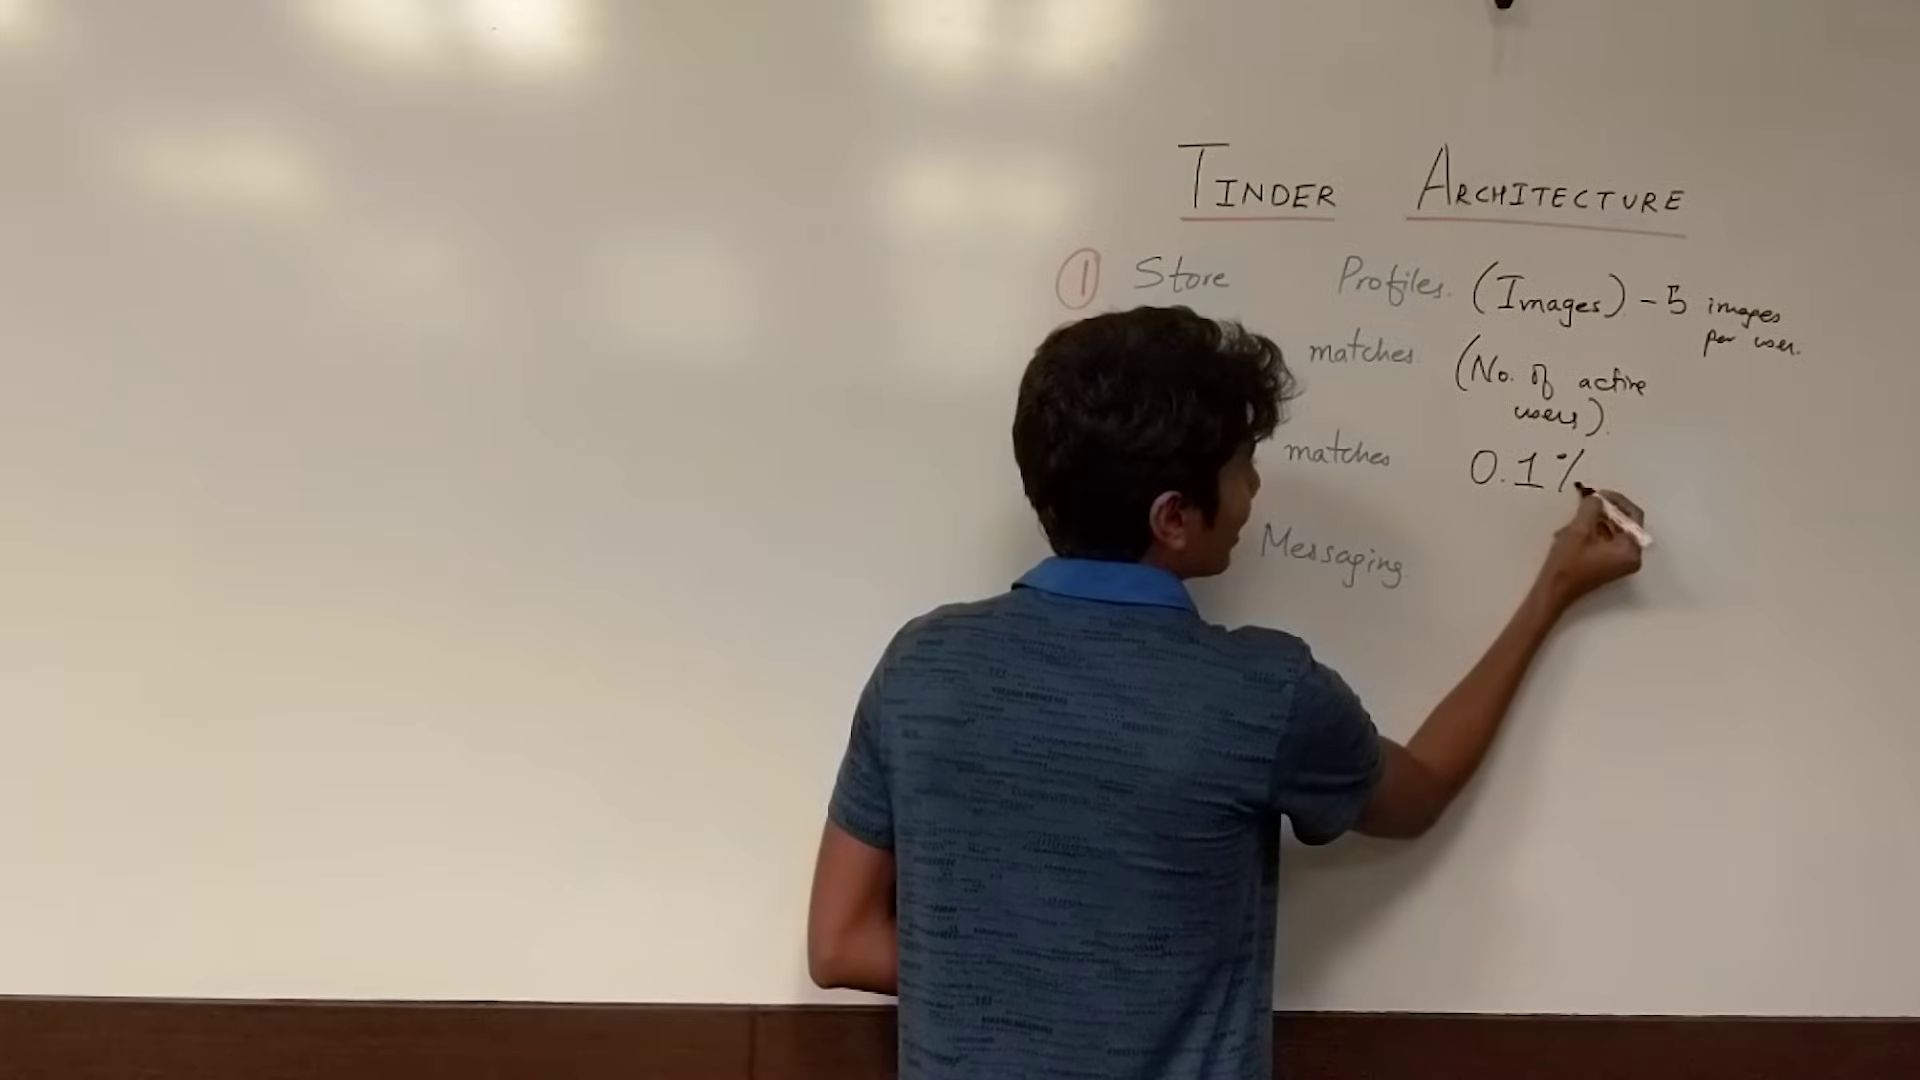 TINDER ARCHITECTURE
① Store Profiles. (Images) - 5 images
per user.
matches (No. of active
users).
matches 0.1%
Messaging.